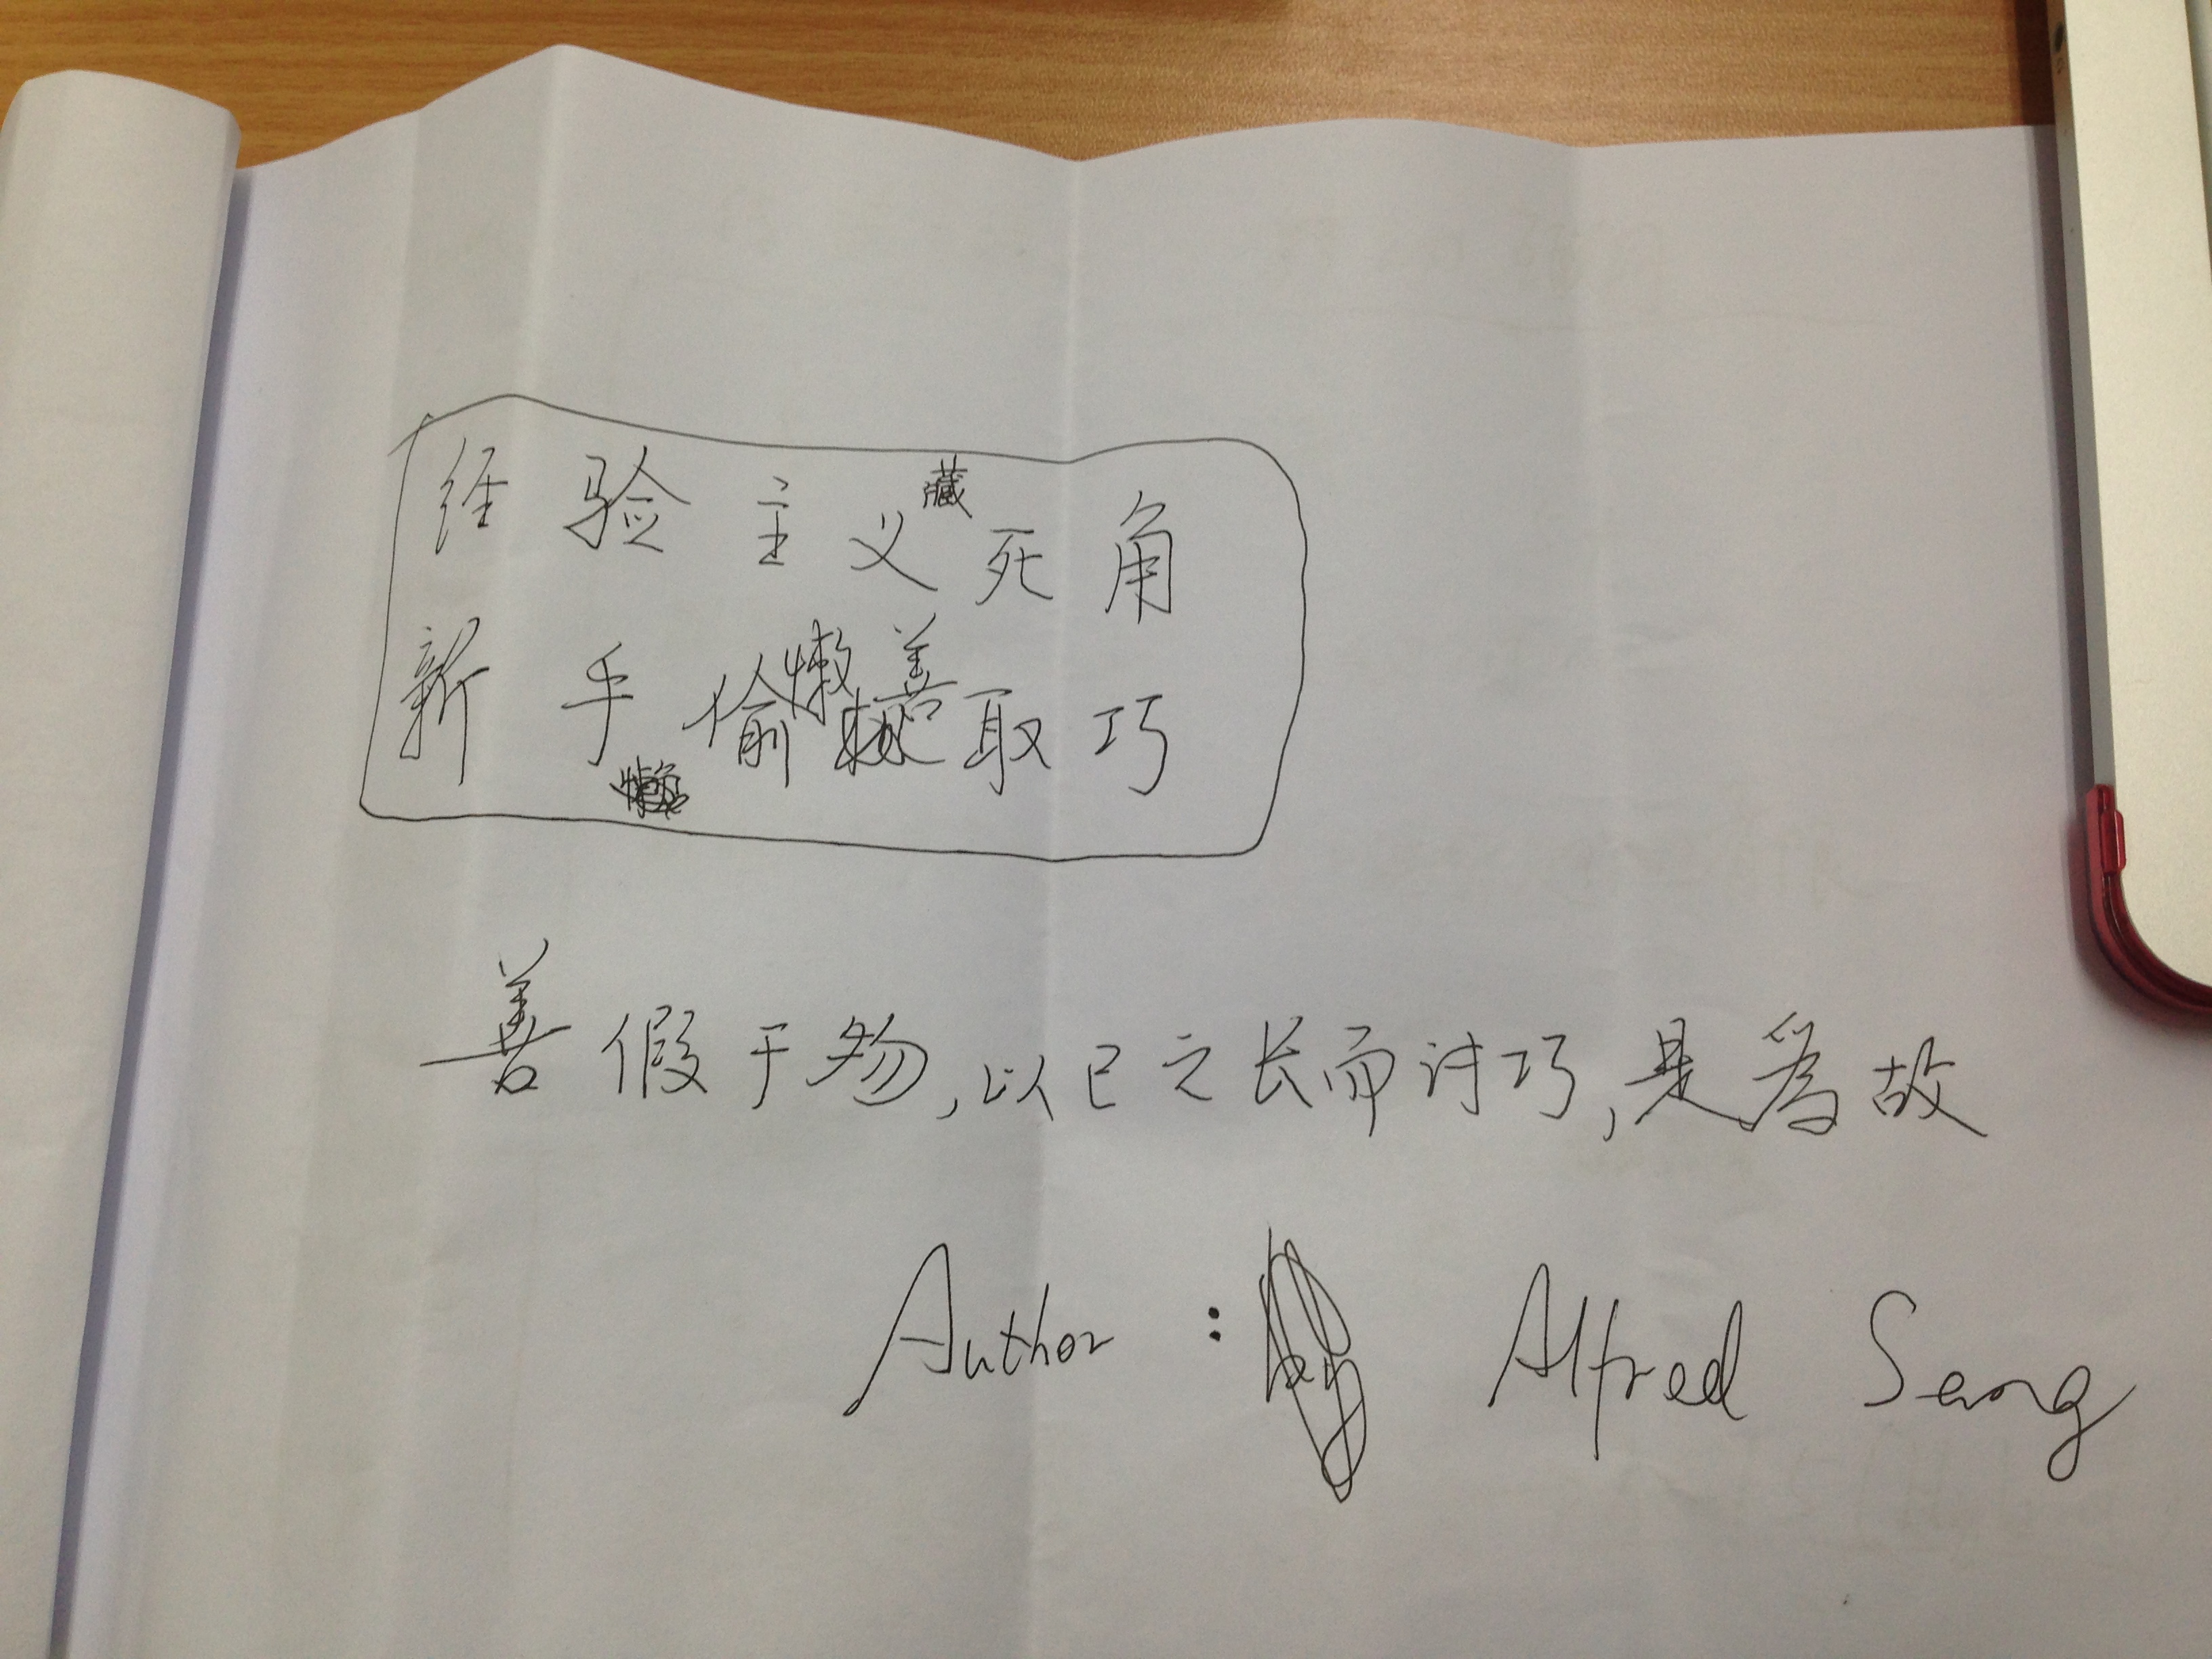 经验主义藏死角
新手偷懒善取巧
善假于物,以己之长而讨巧,是为故
Author : Alfred Sang